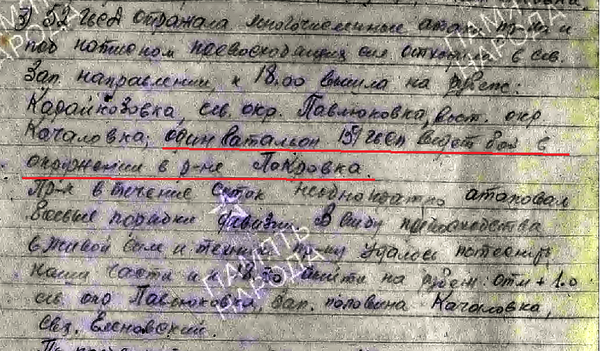 3) 52 гвсд отражала многочисленные атаки пр-ка и
под натиском превосходящих сил отходила в сев.
Зап. направлении, к 18.00 вышла на рубеж:
Карайкозовка, сев. окр. Павлюковка, вост. окр
Качаловка; один батальон 151 гвсп ведет бой в
окружении в р-не Покровка.
Пр-к в течение суток неоднократно атаковал
боевые порядки дивизии. В виду превосходства
в живой силе и технике пр-ку удалось потеснить
наши части и к 18.00 выйти на рубеж: отм + 1.0
сев. окр Павлюковка, зап. половина Качаловка,
свх. Елсновский.
ПАМЯТЬ
НАРОДА
ПАМЯТЬ
НАРОДА